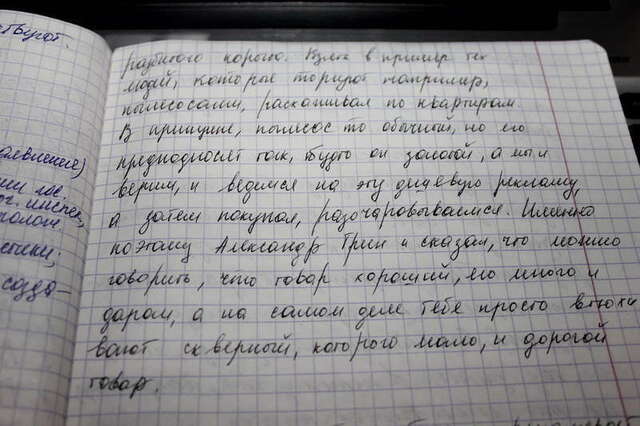 твуют.
разбитого корыта. Взять в пример тех
людей, которые торгуют например,
пылесосами, расхаживая по квартирам.
В принципе, пылесос то обычный, но его
авление)
преподносят так, будто он золотой, а мы и
верим, и ведемся на эту дешевую рекламу,
а затем покупая, разочаровываемся. Именно
поэтому Александр Грин и сказал, что можно
говорить, что товар хороший, его много и
созда-
даром, а на самом деле тебе просто втюхи
вают скверный, которого мало, и дорогой
товар.